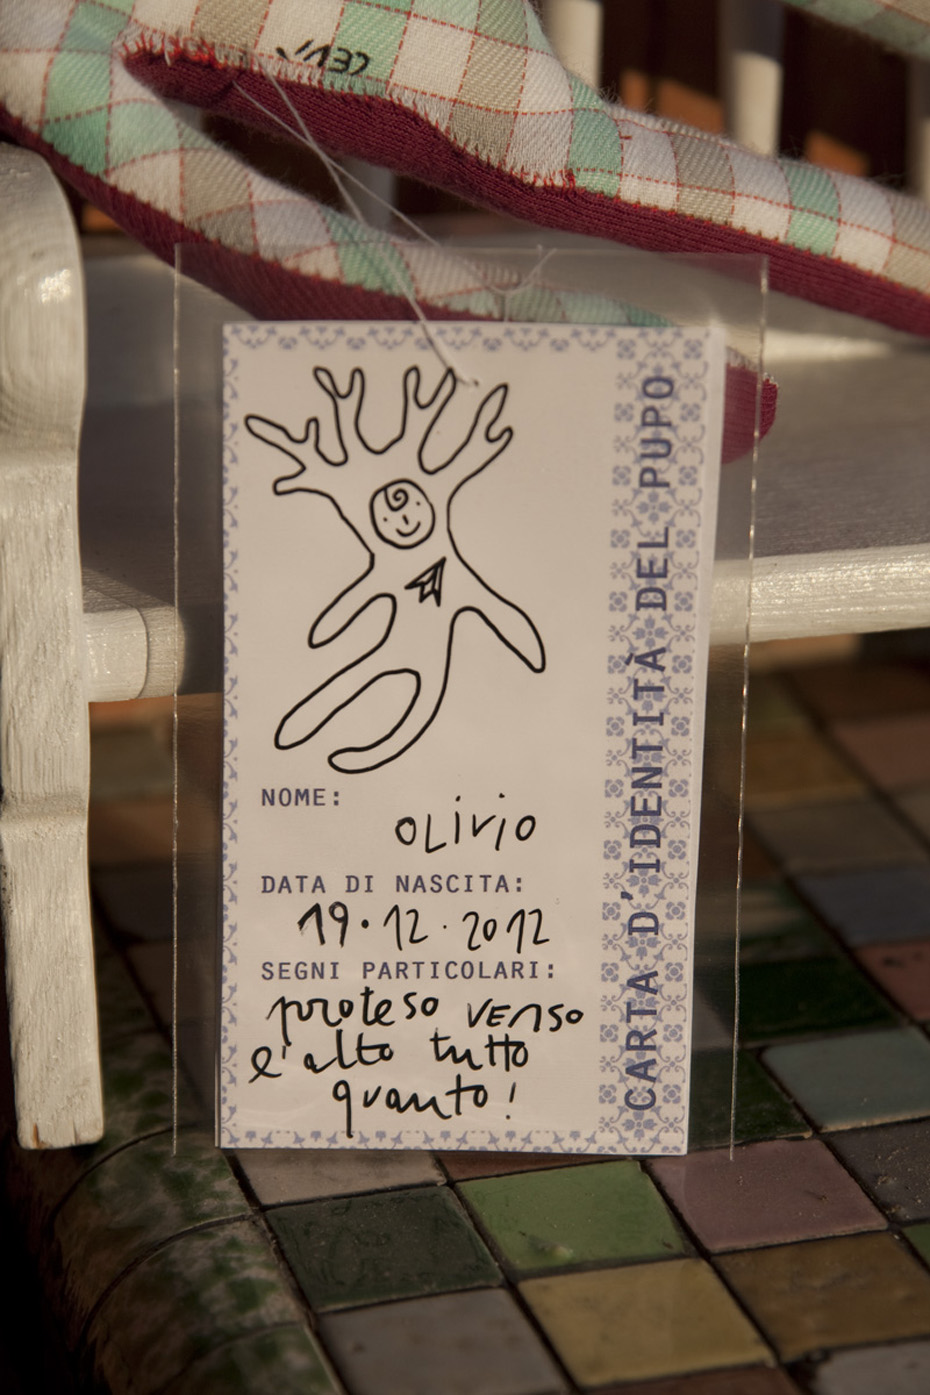 NOME:
OLIVIO
DATA DI NASCITA:
19.12.2012
SEGNI PARTICOLARI:
proteso verso
l'alto tutto
quanto!
CARTA D'IDENTITÀ DEL PUPO